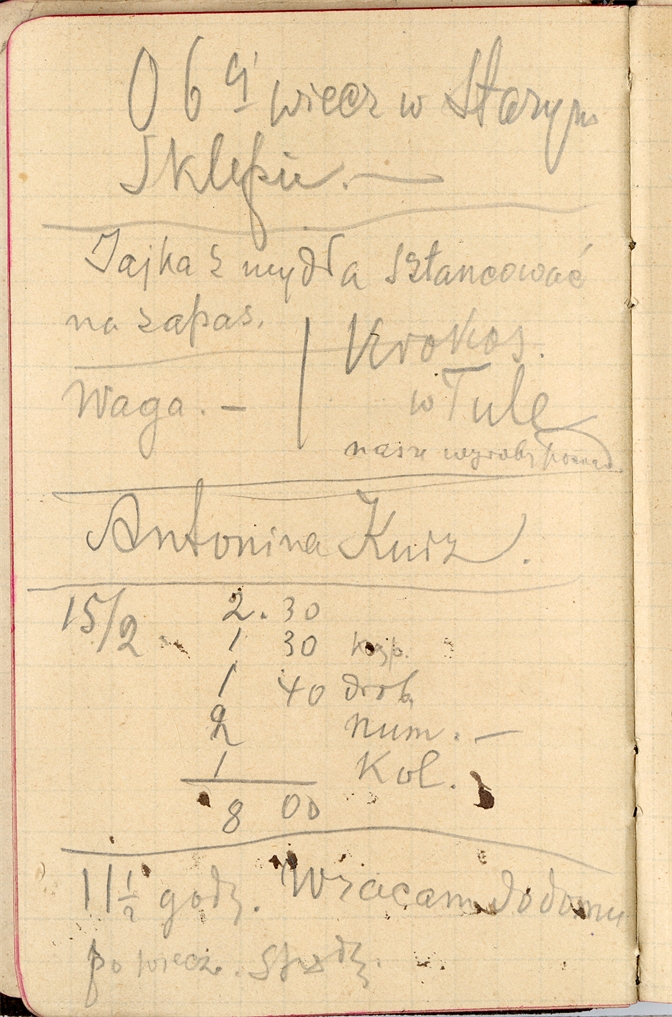 O 6 ej wiecz w Starym
Sklepie. —
Jajka z mydła sztancować
na zapas.
Waga. —
Krokos.
w Tulę
nasze wyroby
Antonina Kurz.
15/2.
2. 30
1 30 kąp.
1 40 drob.
2 num. —
1 Kol.
8 00
11 1/2 godz. Wracam do domu
po wiecz.